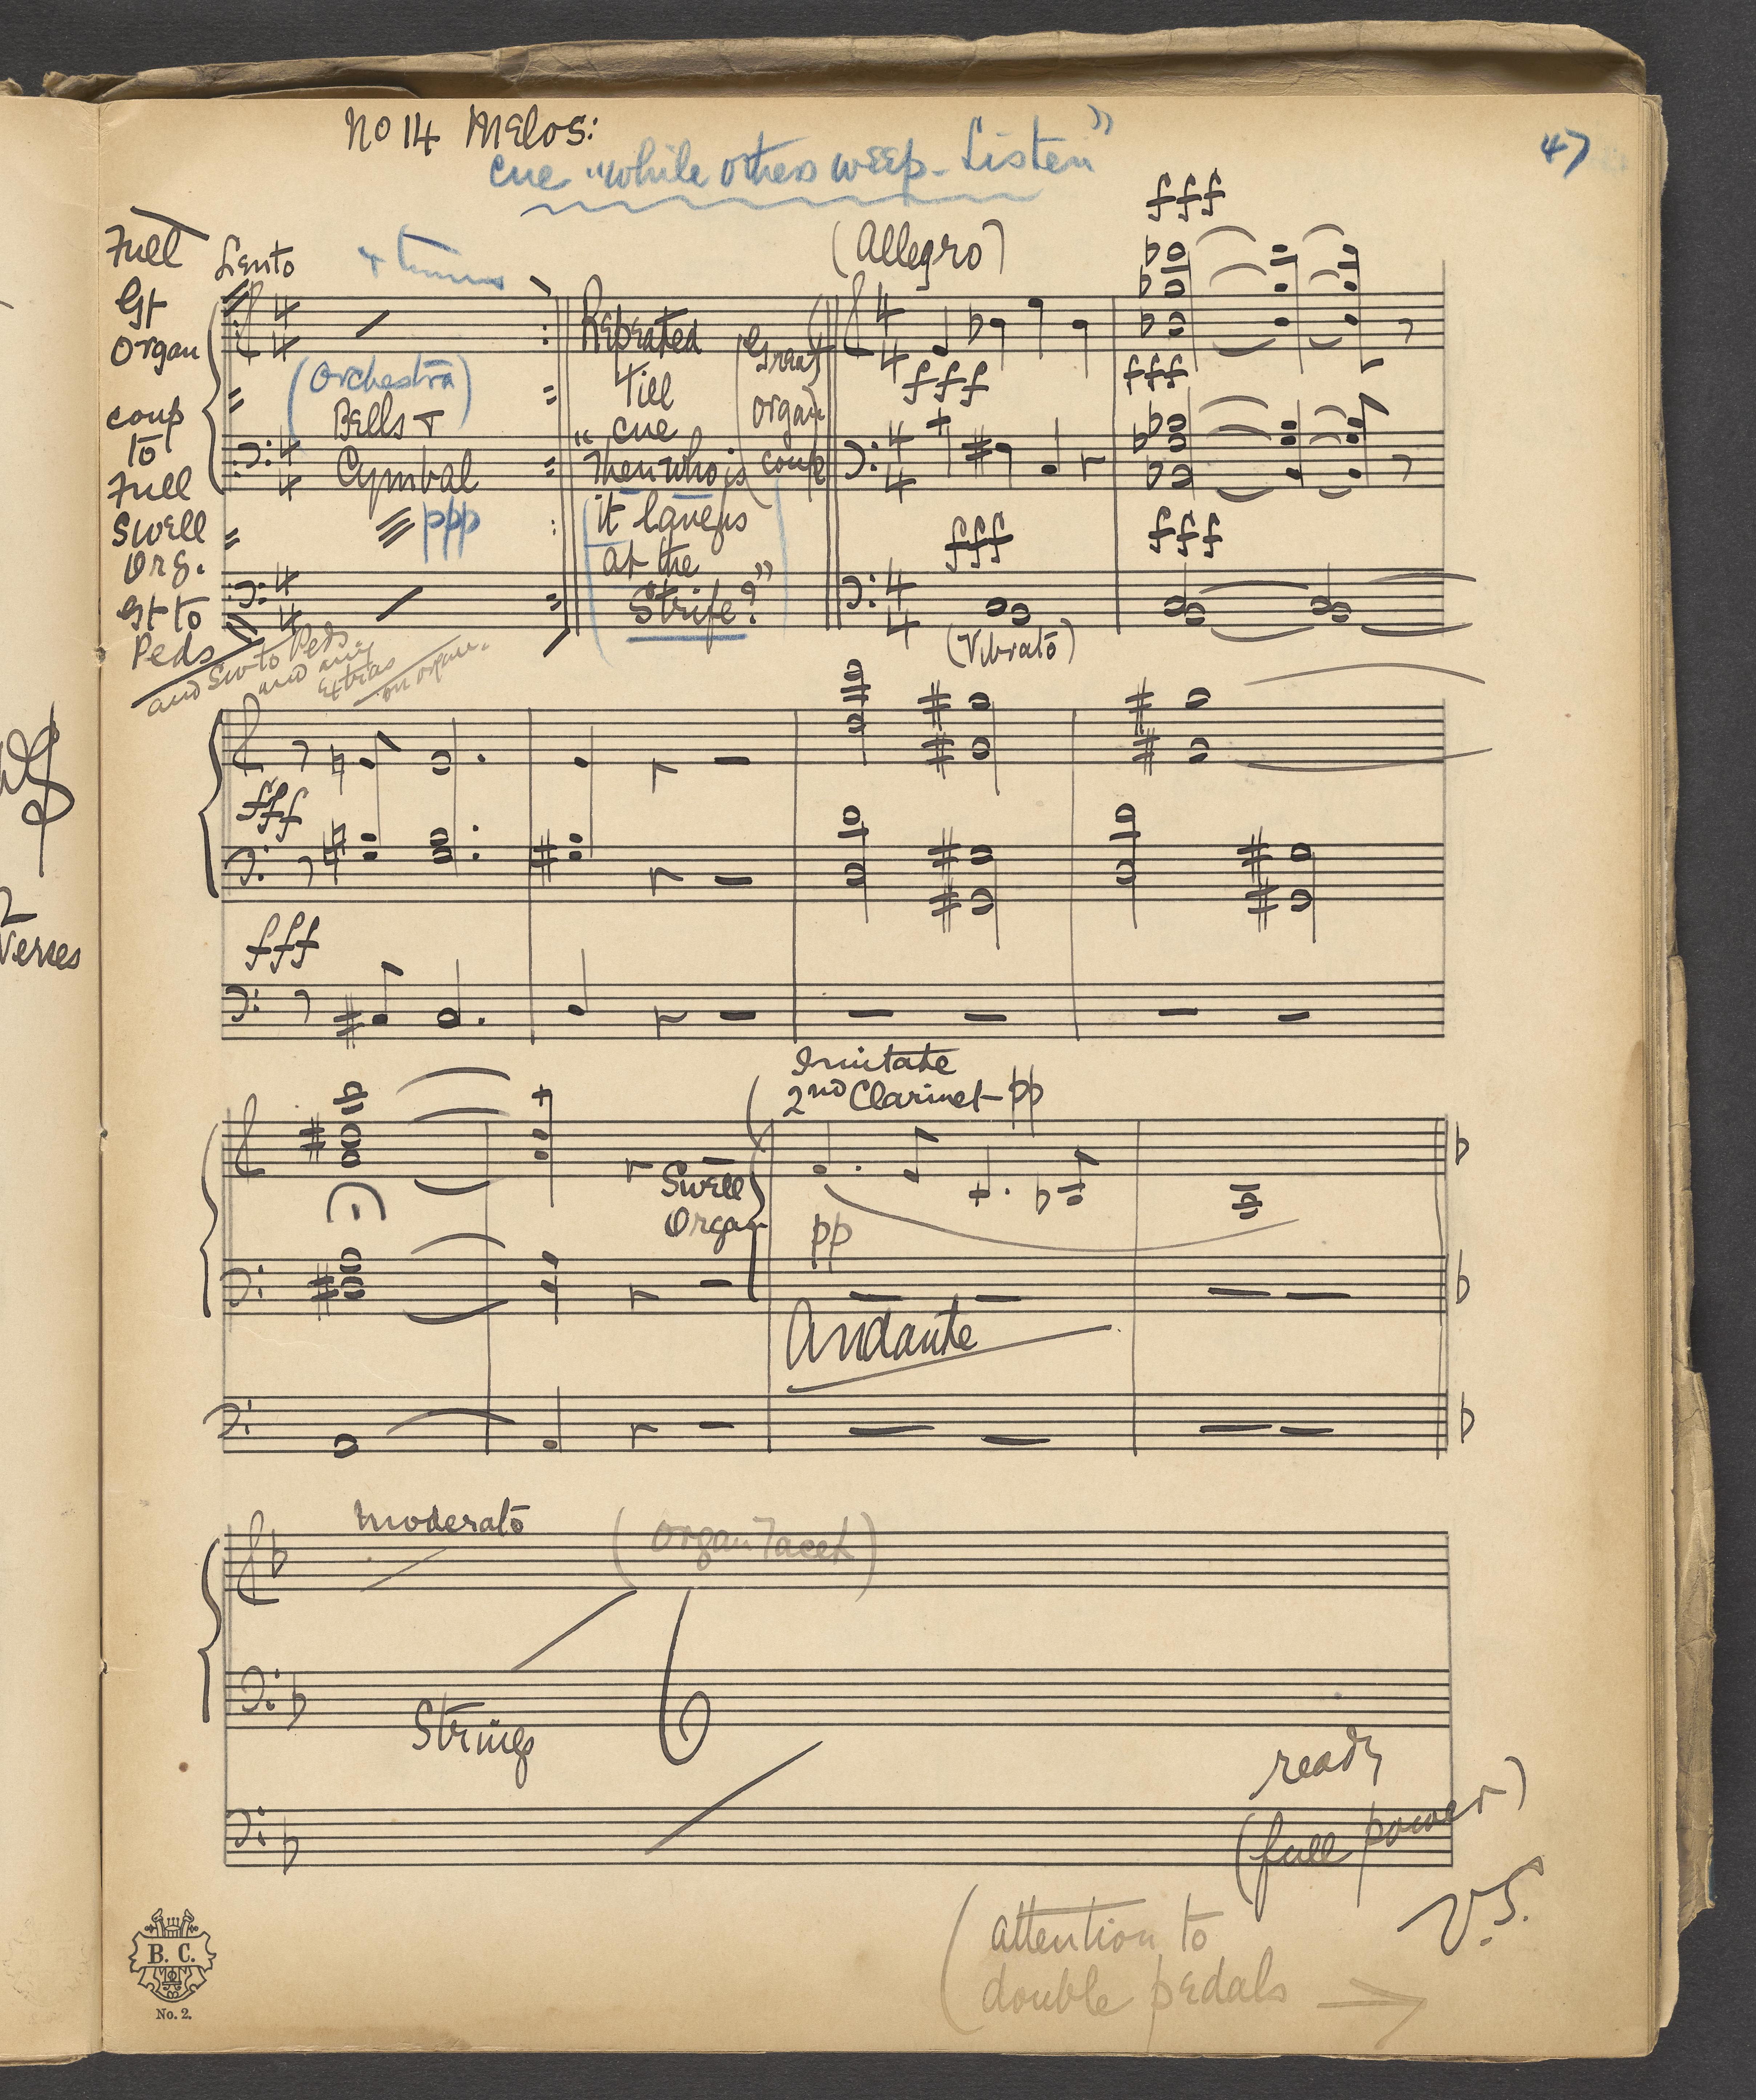 No 14 Melos:
cue "while others weep - Listen"
47
Full
Gt
Organ
coup
to
Full
Swell
Org.
Gt to
Peds
and Sw to Peds
and any
Extras
on organ.
Lento
(Orchestra)
Bells +
Cymbal
ppp
Repeated
till
cue
"Then who is
it laughs
at the
Strife?"
(Great
organ
coup
(Allegro)
fff
fff
fff
fff
fff
(Vibrato)
fff
fff
Verses
Imitate
2nd Clarinet - pp
Swell
Organ
pp
Andante
Moderato
(Organ Tacet)
Strings
ready
(full power)
V.S.
(attention to
double pedals
B. C.
No. 2.